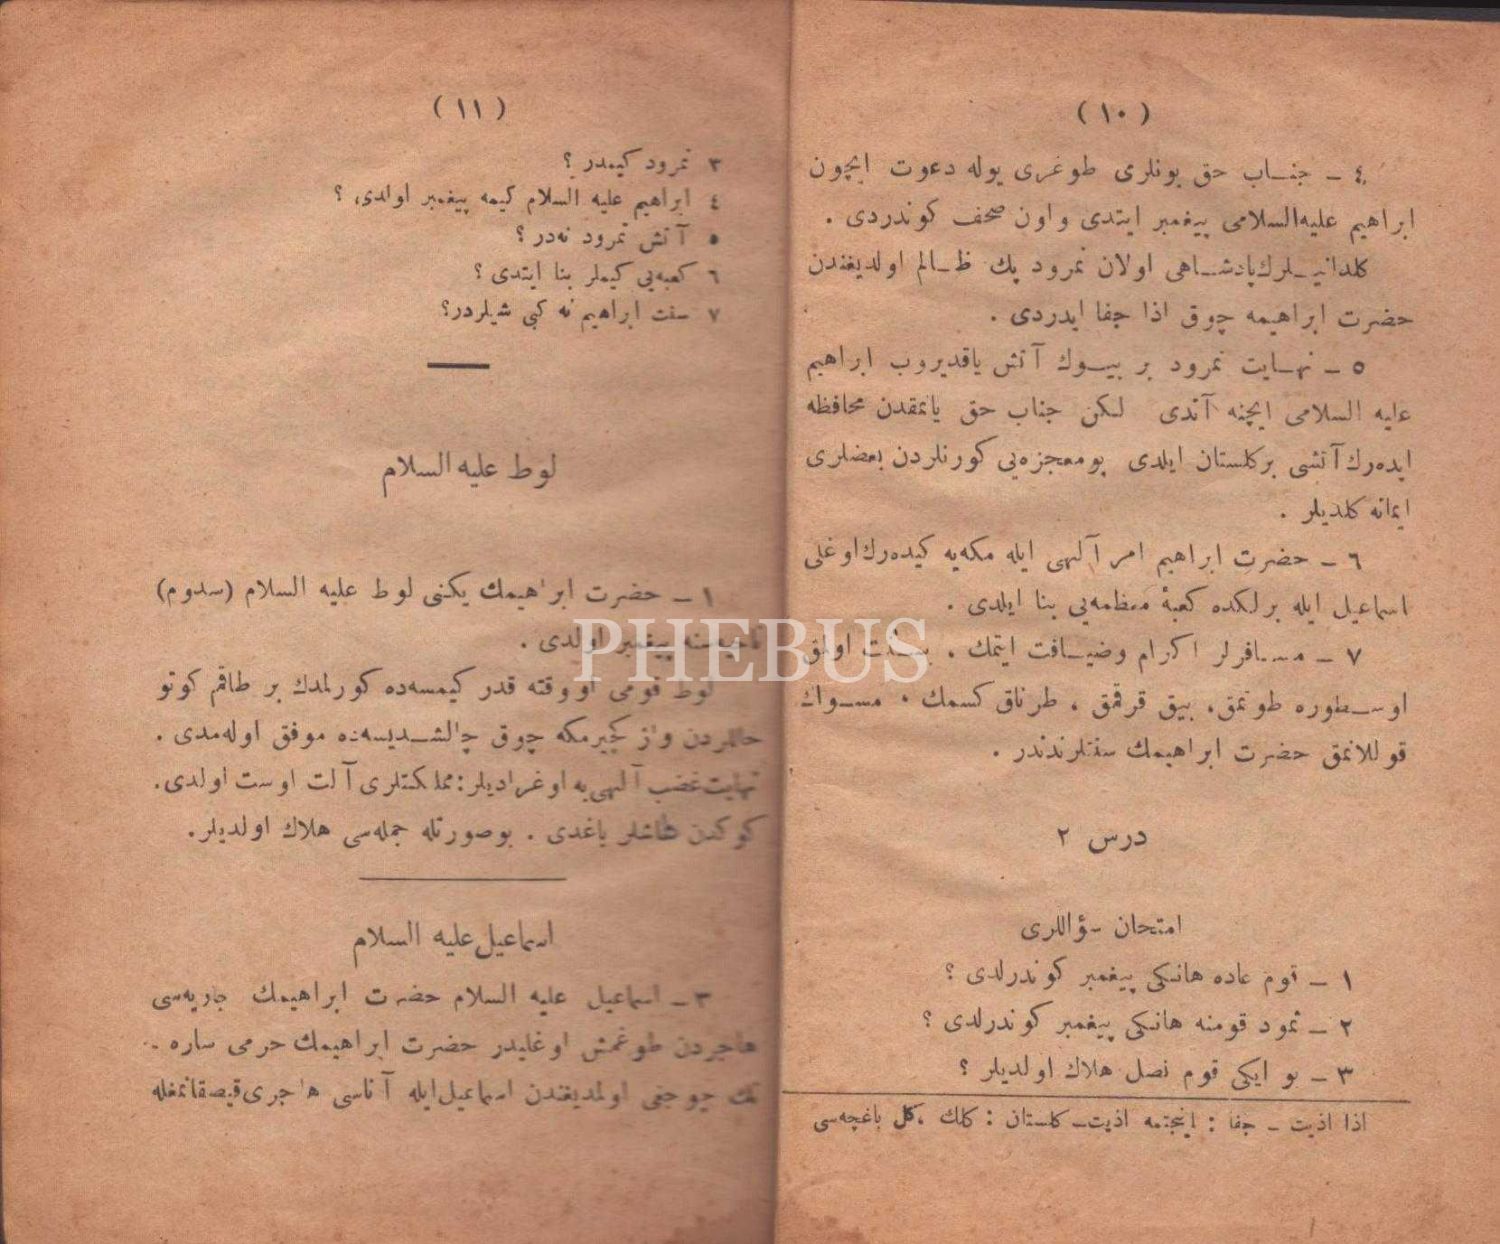 ( ١٠ )
٤ ـ جناب حق بونلرى طوغرى يوله دعوت ايچون
ابراهيم عليه‌السلامى پيغمبر ايتدى واون صحف كوندردى .
كلدانيلرك پادشاهى اولان نمرود پك ظالم اولديغندن
حضرت ابراهيمه چوق اذا جفا ايدردى .
٥ ـ نهايت نمرود بر بيوك آتش ياقديروب ابراهيم
عليه السلامى ايچنه آتدى لكن جناب حق يانمقدن محافظه
ايده‌رك آتشى بركلستان ايلدى بومعجزه‌يى كورنلردن بعضلرى
ايمانه كلديلر .
٦ ـ حضرت ابراهيم امر آلهى ايله مكه‌يه كيده‌رك اوغلى
اسماعيل ايله برلكده كعبهٔ معظمه‌يى بنا ايلدى .
٧ ـ مسافرلر اكرام وضيافت ايتمك ، اولمق
اوسطوره طوتمق، بيق قرقمق ، طرناق كسمك ، مسواك
قوللانمق حضرت ابراهيمك سنتلرندندر .
درس ٢
امتحان سؤاللرى
١ ـ قوم عاده هانكى پيغمبر كوندرلدى ؟
٢ ـ ثمود قومنه هانكى پيغمبر كوندرلدى ؟
٣ ـ بو ايكى قوم نصل هلاك اولديلر ؟
اذا اذيت ـ جفا : اينجتمه اذيت ـ كلستان : كلك ، كل باغچه‌سى
( ١١ )
٣ نمرود كيمدر ؟
٤ ابراهيم عليه السلام كيمه پيغمبر اولدى، ؟
٥ آتش نمرود نه‌در ؟
٦ كعبه‌يى كيملر بنا ايتدى ؟
٧ سنت ابراهيم نه كبى شيلردر؟
لوط عليه السلام
١ ـ حضرت ابراهيمك يكنى لوط عليه السلام (سدوم)
ناحيه‌سنه پيغمبر اولدى .
لوط قومى اووقته قدر كيمسه‌ده كورلمدك بر طاقم كوتو
حاللردن واز كچيرمكه چوق چالشديسه‌ده موفق اوله‌مدى .
نهايت غضب آلهى‌يه اوغراديلر: مملكتلرى آلت اوست اولدى.
كوكدن طاشلر ياغدى . بوصورتله جمله‌سى هلاك اولديلر.
اسماعيل عليه السلام
٣ ـ اسماعيل عليه السلام حضرت ابراهيمك جاريه‌سى
هاجردن طوغمش اوغليدر حضرت ابراهيمك حرمى ساره ـ
نك چوجغى اولمديغندن اسماعيل ايله آناسى هاجرى قيصقانمغله
PHEBUS